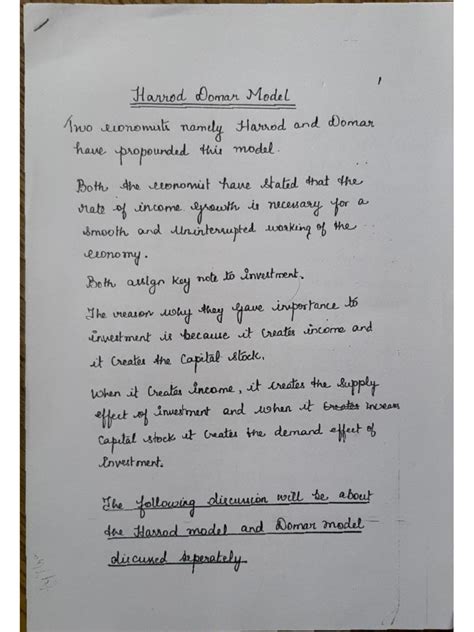 1
Harrod Domar Model
Two economists namely Harrod and Domar
have propounded this model.
Both the economist have stated that the
rate of income growth is necessary for a
smooth and Uninterrupted working of the
economy.
Both assign key note to investment.
The reason why they gave importance to
investment is because it creates income and
it creates the Capital stock.
When it creates income, it creates the supply
effect of investment and when it creates
Capital stock it creates the demand effect of
Investment.
The following discussion will be about
the Harrod model and Domar model
discussed seperately